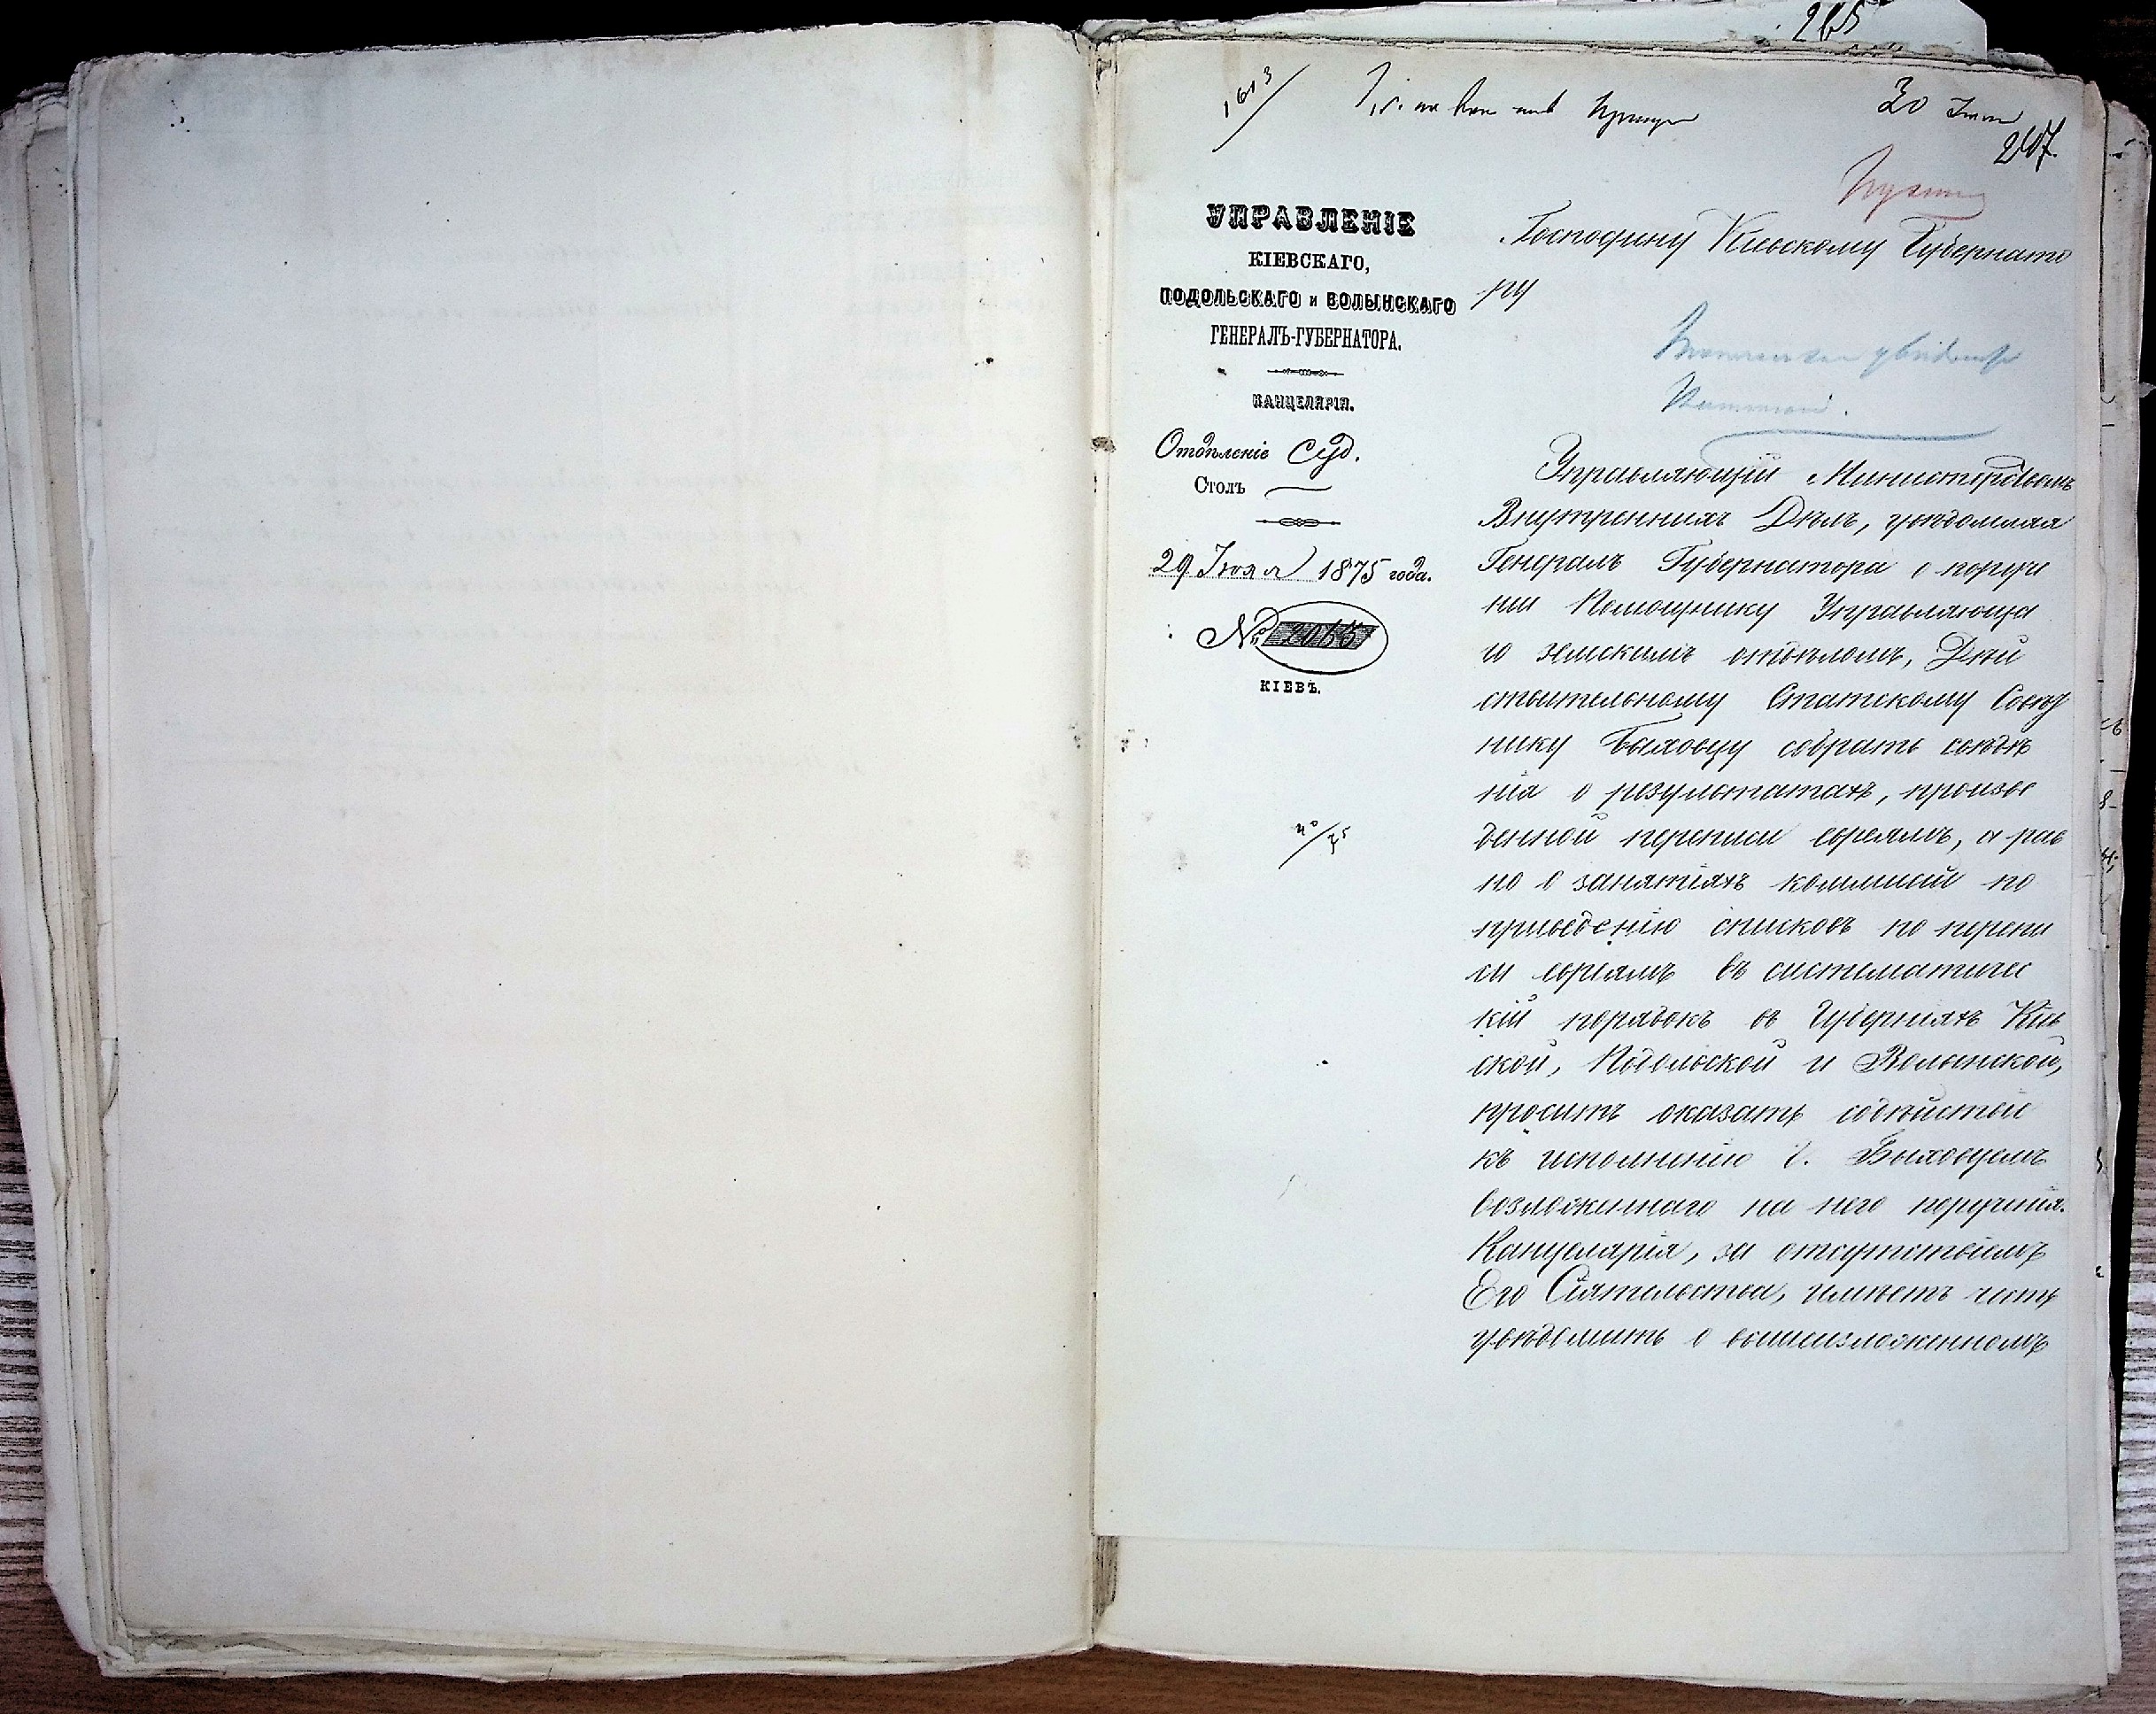 265
1613
30
207.
УПРАВЛЕНІЕ
КІЕВСКАГО,
ПОДОЛЬСКАГО и ВОЛЫНСКАГО
ГЕНЕРАЛЪ-ГУБЕРНАТОРА.
КАНЦЕЛЯРІЯ.
Отдѣленіе Суд.
Столъ
29 Іюля 1875 года.
№ 2055
КІЕВЪ.
Господину Кіевскому Губернато
ру
Управляющій Министерствомъ
Внутреннихъ Дѣлъ, увѣдомляя
Генералъ Губернатора о поруче
ніи Помощнику Управляюща
го земскимъ отдѣломъ, Дѣй
ствительному Статскому Совѣт
нику Быховцу собрать свѣдѣ
нія о результатахъ, произве
денной переписи евреямъ, а рав
но о занятіяхъ коммисій по
приведенію списковъ по перепи
си евреямъ въ систематичес
кій порядокъ въ Губерніяхъ Кіев
ской, Подольской и Волынской,
проситъ оказать содѣйствіе
къ исполненію г. Быховцемъ
возложеннаго на него порученія.
Канцелярія, за отсутствіемъ
Его Сіятельства, имѣетъ честь
увѣдомить о вышеизложенномъ